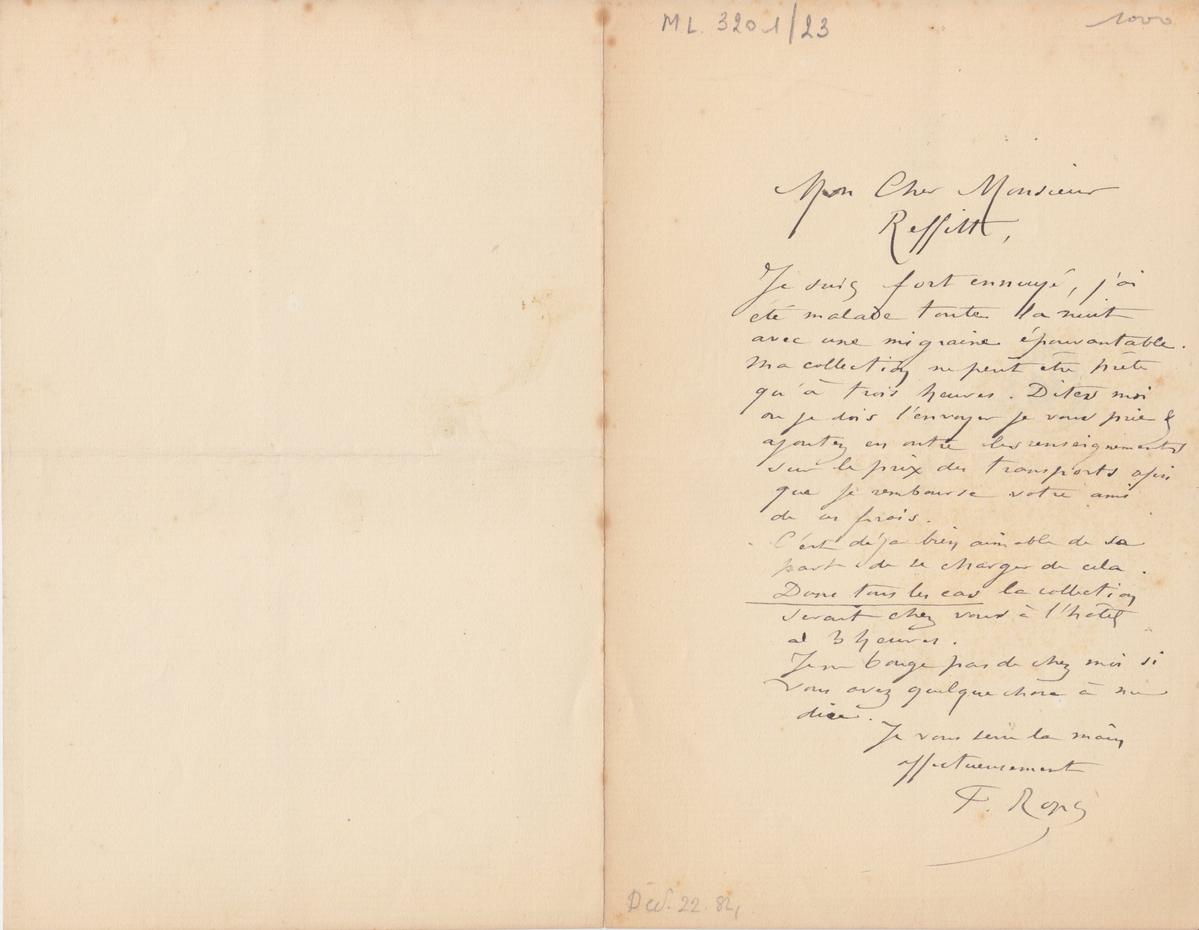 ML. 3201/23
1000
Mon Cher Monsieur
Reffitt,
Je suis fort ennuyé, j'ai
été malade toute la nuit
avec une migraine épouvantable.
Ma collection ne peut être prête
qu'à trois heures. Dites moi
ou je dois l'envoyer je vous prie &
ajoutez en outre les renseignements
sur le prix des transports afin
que je rembourse votre ami
de ses frais.
C'est déjà bien aimable de sa
part de se charger de cela.
Dans tous les cas la collection
serait chez vous à l'hôtel
à 3 heures.
Je ne bouge pas de chez moi si
vous avez quelque chose à me
dire.
Je vous serre la main
affectueusement
F. Rops
Déc. 22. 82,